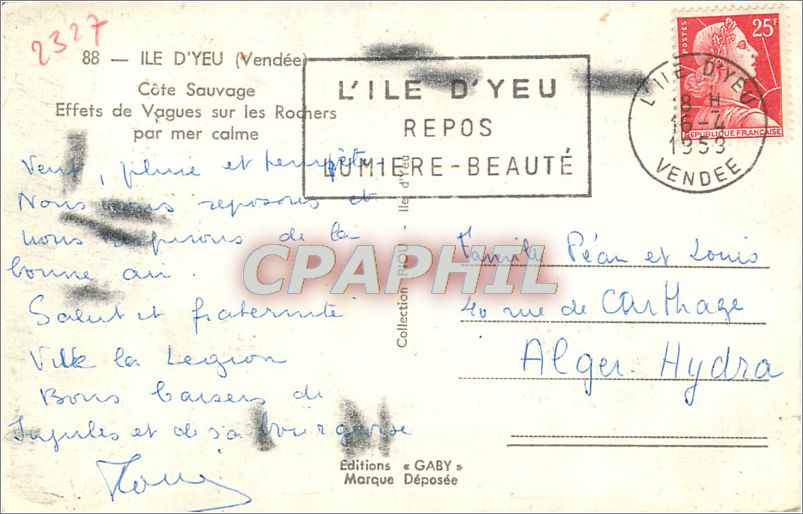 2327
88 — ILE D'YEU (Vendée)
Côte Sauvage
Effets de Vagues sur les Rochers
par mer calme
L'ILE D'YEU
REPOS
LUMIERE-BEAUTÉ
POSTES
25F
REPUBLIQUE FRANÇAISE
L'ILE D'YEU
18 H
16-4
1959
VENDEE
Vent, pluie et tempête
Nous nous reposons et
nous de la
bonne air.
Salut et fraternité
Vive la Legion
Bons baisers de
et de sa bourgeoise
Famille Péan et Louis
40 rue de Carthage
Alger. Hydra
Collection RIOU - Ile d'Yeu
CPAPHIL
Editions « GABY »
Marque Déposée